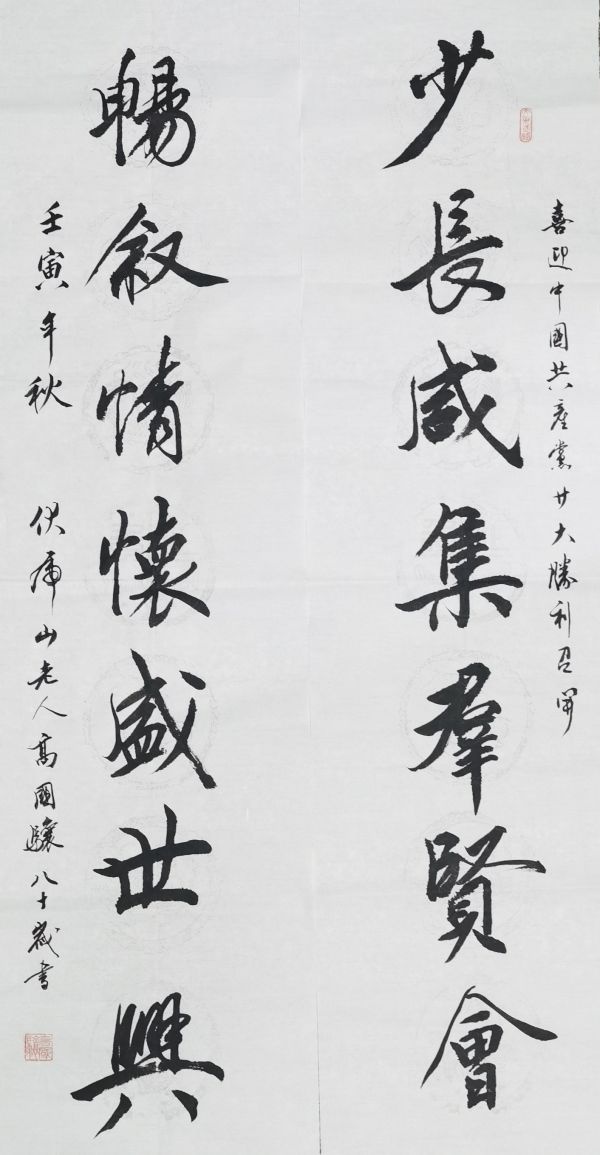 喜迎中國共產黨廿大勝利召開
少長咸集羣賢會
暢敘情懷盛世興
壬寅年秋 伏虎山老人高國驤八十歲書